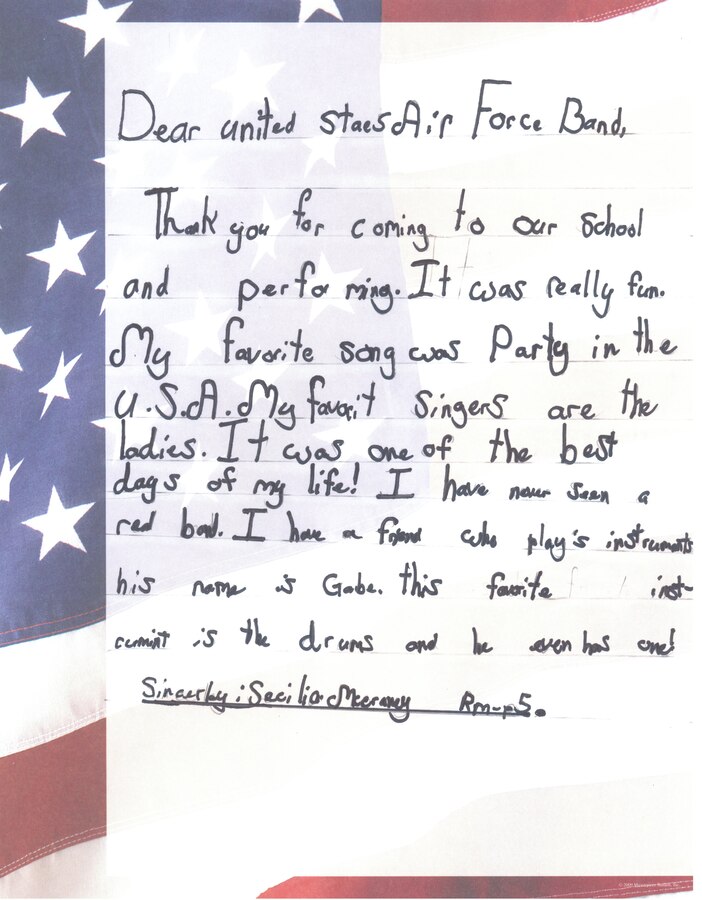 Dear united staes Air Force Band,
Thank you for coming to our school
and performing. It was really fun.
My favorite song was Party in the
U.S.A. My favorit singers are the
ladies. It was one of the best
days of my life! I have never seen a
red band. I have a friend who play's instruments
his name is Gabe. this favorite inst-
rumint is the drums and he even has one!
Sincerley: Secilia Rm-p5.